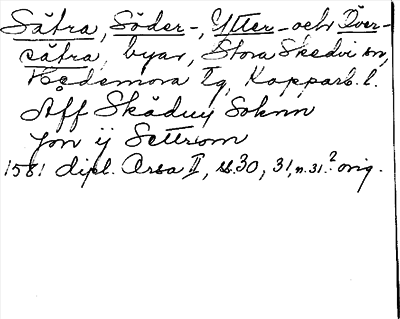 Sätra, Söder-, Ytter- och Över-
sätra, byar, Stora Skedvi sn,
Hedemora Tg, Kopparb. l.
Aff Skäduy Soknn
Jon ij Settrom
1581 dipl. Arsa II, s. 30, 31, n. 31.² orig.